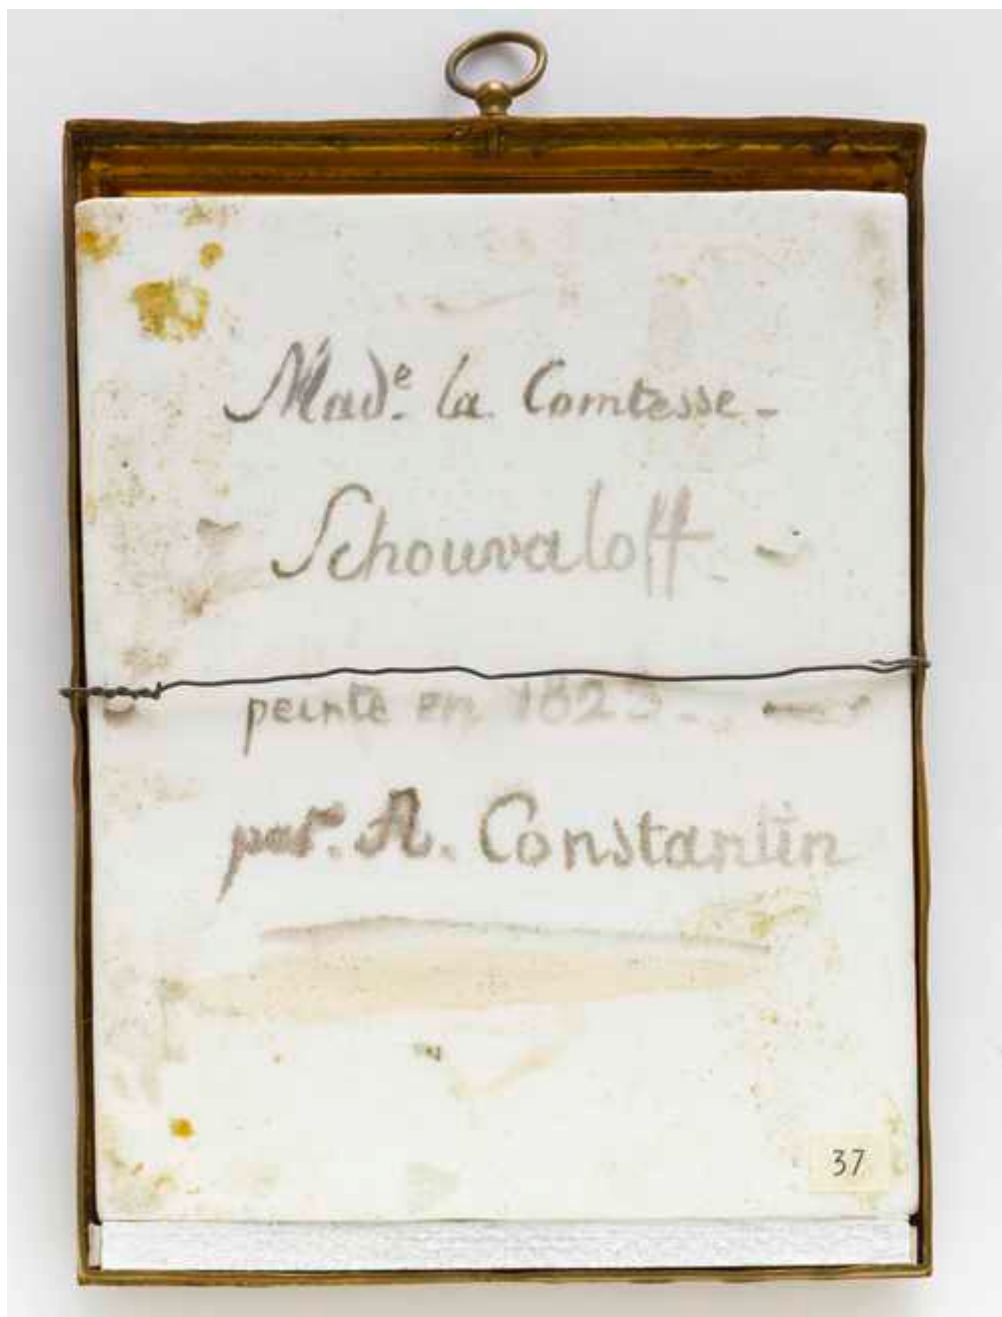 Made. la Comtesse -
Schouvaloff
peinte en 1823 -
par. A. Constantin
37